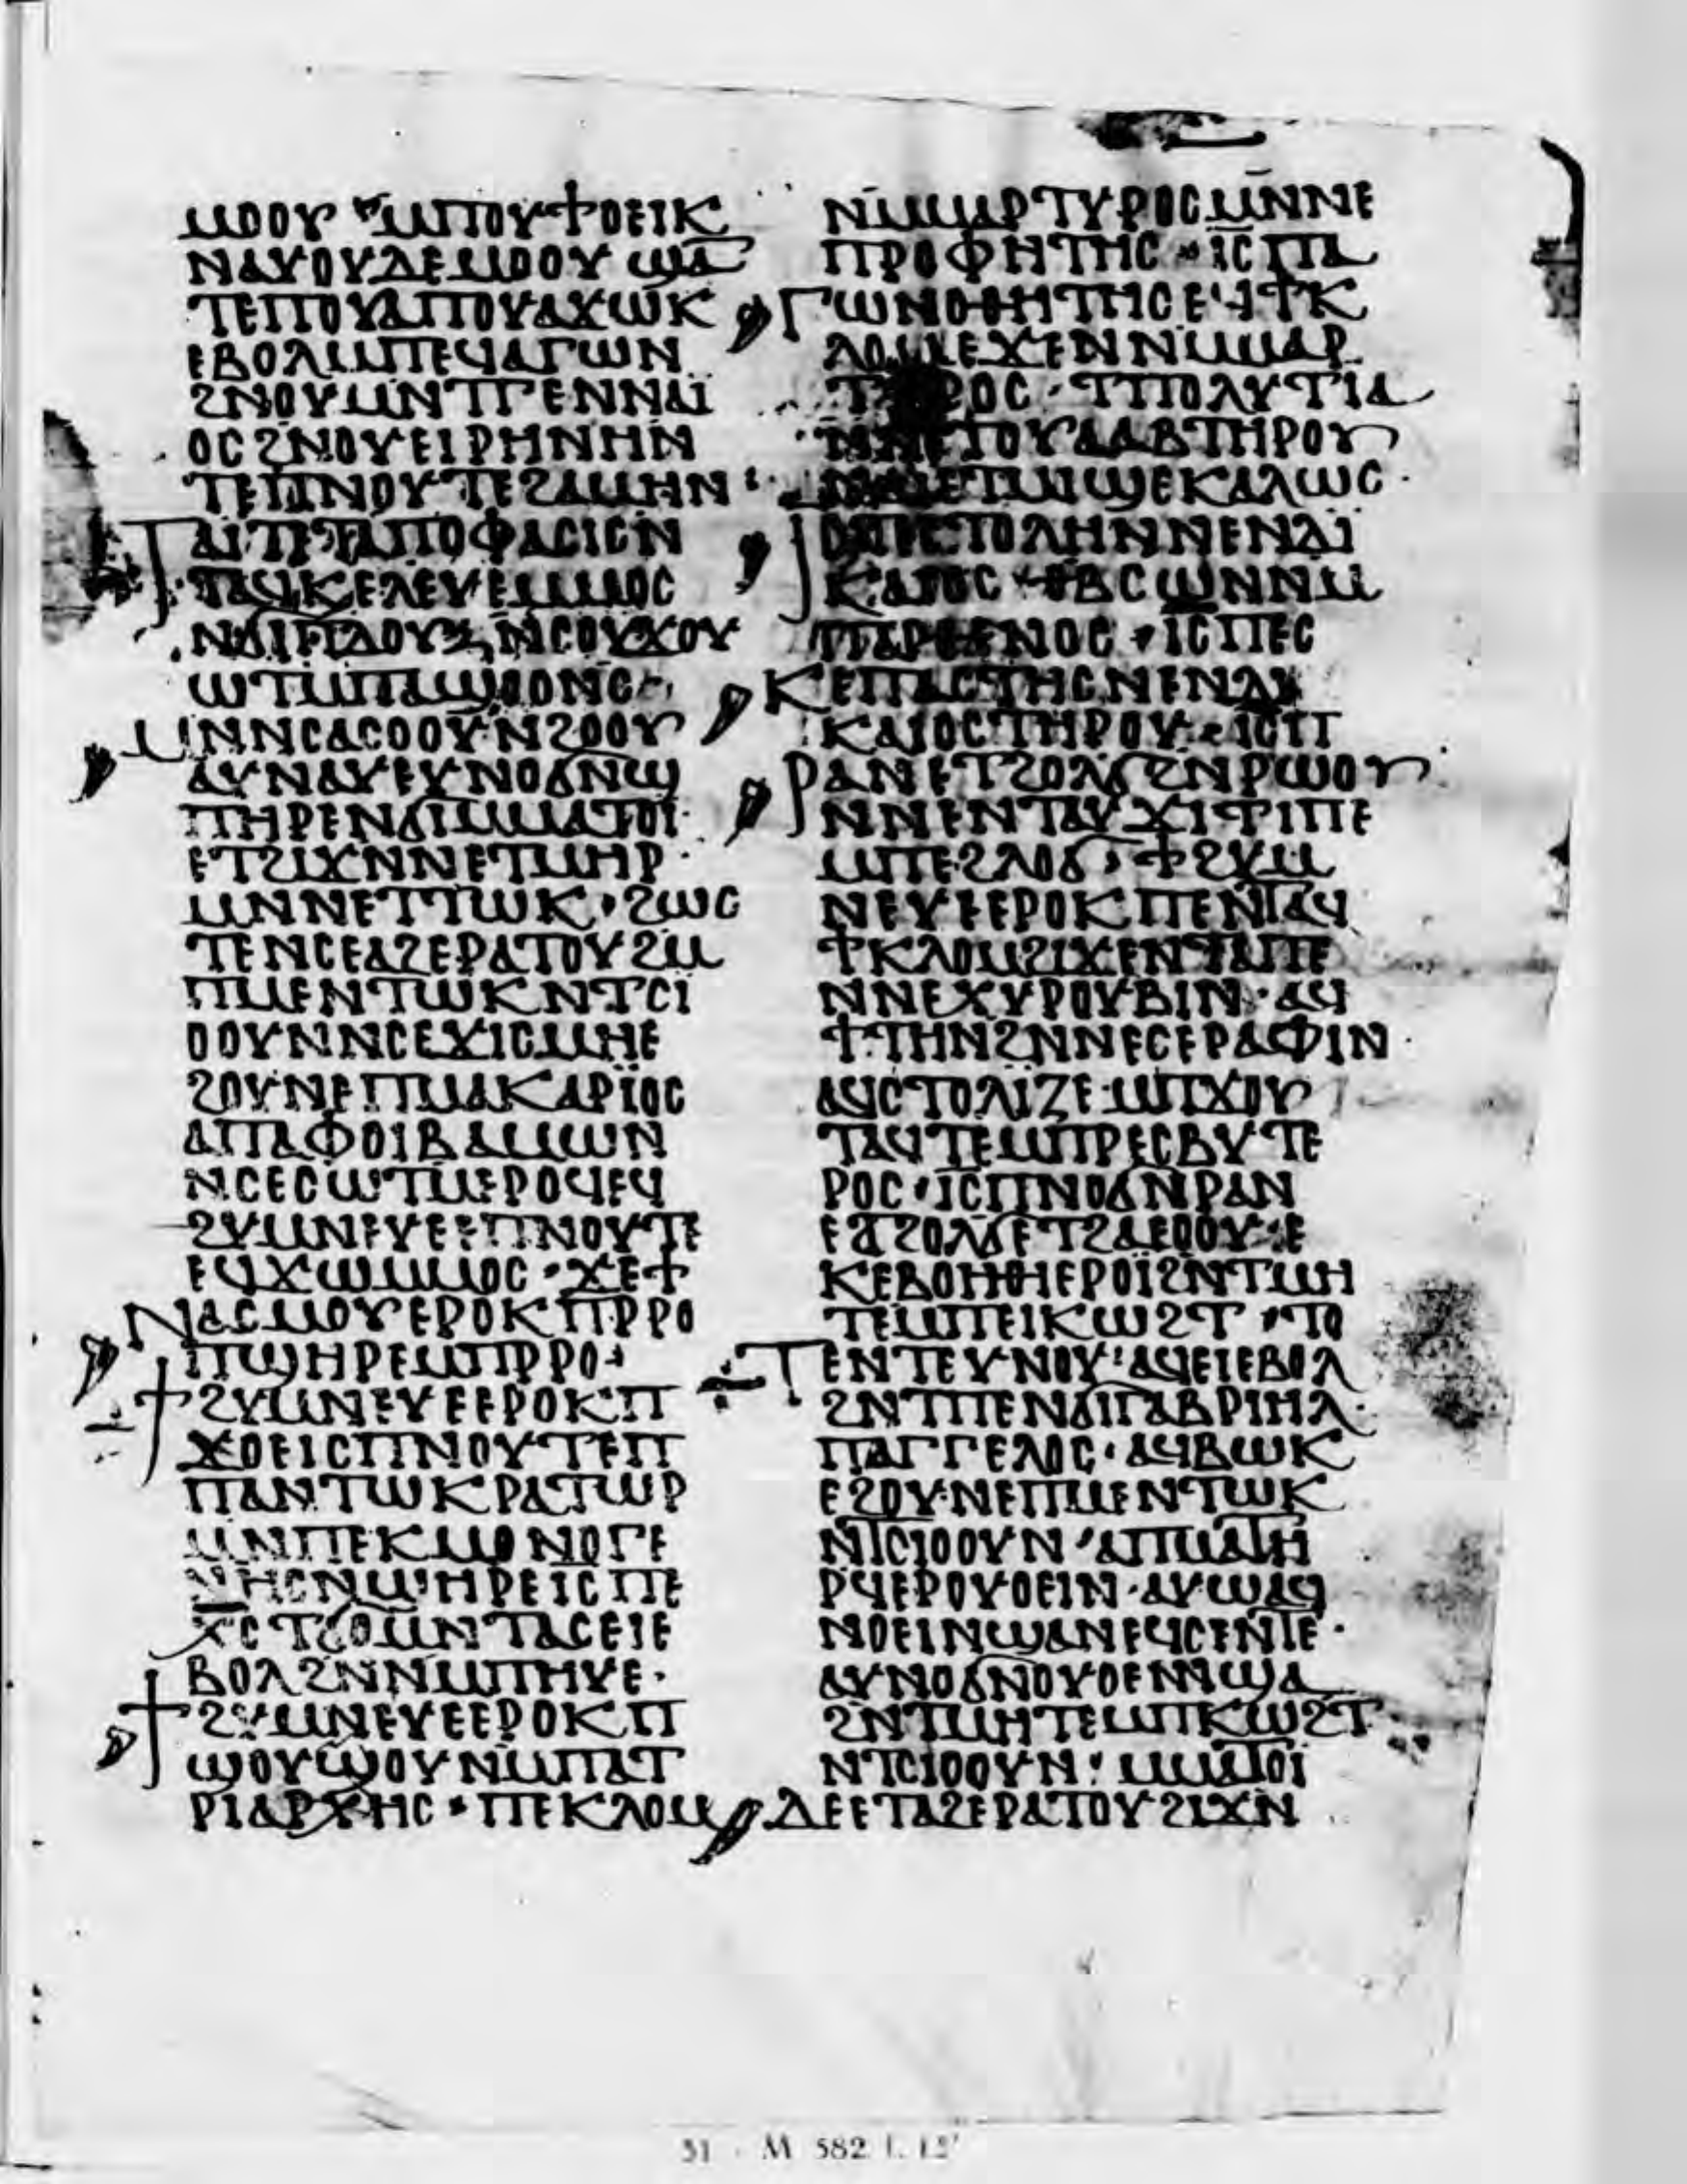 ⲙⲟⲟⲩ ⲙⲡⲟⲩϯⲟⲉⲓⲕ
ⲛⲁⲩⲟⲩⲇⲉⲙⲟⲟⲩ ϣⲁ
ⲧⲉⲡⲟⲩⲁⲡⲟⲩⲁϫⲱⲕ
ⲉⲃⲟⲗⲙⲡⲉϥⲁⲅⲱⲛ
ϩⲛⲟⲩⲙⲛⲧⲅⲉⲛⲛⲁⲓ
ⲟⲥϩⲛⲟⲩⲉⲓⲣⲏⲛⲏⲛ
ⲧⲉⲡⲛⲟⲩⲧⲉϩⲁⲙⲏⲛ
ⲧⲁⲓⲧⲉⲧⲁⲡⲟⲫⲁⲥⲓⲥⲛ
ⲧⲁϥⲕⲉⲗⲉⲩⲉⲙⲙⲟⲥ
ⲛϭⲓⲡⲇⲟⲩⲝ ⲛⲥⲟⲩϫⲟⲩ
ⲱⲧⲙⲡⲁϣⲟⲛⲥ
ⲙⲛⲛⲥⲁⲥⲟⲟⲩⲛϩⲟⲟⲩ
ⲁⲩⲛⲁⲩⲉⲩⲛⲟϭⲛϣ
ⲡⲏⲣⲉⲛϭⲓⲙⲙⲁⲧⲟⲓ
ⲉⲧϩⲓϫⲛⲛⲉⲧⲙⲏⲣ ·
ⲙⲛⲛⲉⲧⲧⲱⲕ · ϩⲱⲥ
ⲧⲉⲛⲥⲉⲁϩⲉⲣⲁⲧⲟⲩϩⲙ
ⲡⲙⲉⲛⲧⲱⲕⲛⲧⲥⲓ
ⲟⲟⲩⲛⲛⲥⲉϫⲓⲥⲙⲏⲉ
ϩⲟⲩⲛⲉⲡⲙⲁⲕⲁⲣⲓⲟⲥ
ⲁⲡⲁⲫⲟⲓⲃⲁⲙⲱⲛ
ⲛⲥⲉⲥⲱⲧⲙⲉⲣⲟϥⲉϥ
ϩⲩⲙⲛⲉⲩⲉⲉⲡⲛⲟⲩⲧⲉ
ⲉϥϫⲱⲙⲙⲟⲥ · ϫⲉϯ
ⲛⲁⲥⲙⲟⲩⲉⲣⲟⲕⲡⲣⲣⲟ
ⲡϣⲏⲣⲉⲙⲡⲣⲣⲟ
ϯϩⲩⲙⲛⲉⲩⲉⲉⲣⲟⲕⲡ
ϫⲟⲉⲓⲥⲡⲛⲟⲩⲧⲉⲡ
ⲡⲁⲛⲧⲱⲕⲣⲁⲧⲱⲣ
ⲙⲛⲡⲉⲕⲙⲟⲛⲟⲅⲉ
ⲛⲏⲥⲛϣⲏⲣⲉⲓⲥⲡⲉ
ⲭⲥⲧϭⲟⲙⲛⲧⲁⲥⲉⲓⲉ
ⲃⲟⲗϩⲛⲛⲙⲡⲏⲩⲉ ·
ϯϩⲩⲙⲛⲉⲩⲉⲉⲣⲟⲕⲡ
ϣⲟⲩϣⲟⲩⲛⲙⲡⲁⲧ
ⲣⲓⲁⲣⲭⲏⲥ · ⲡⲉⲕⲗⲟⲙ
ⲛⲙⲙⲁⲣⲧⲩⲣⲟⲥⲙⲛⲛⲉ
ⲡⲣⲟⲫⲏⲧⲏⲥ · ⲓⲥⲡⲁ
ⲅⲱⲛⲟⲑⲏⲧⲏⲥⲉϥϯⲕ
ⲗⲟⲙⲉϫⲉⲛⲛⲙⲙⲁⲣ
ⲣⲟⲥ · ⲧⲡⲟⲗⲩⲧⲓⲁ
ⲛⲛⲉⲧⲟⲩⲁⲁⲃⲧⲏⲣⲟⲩ
ⲉⲧⲙⲓϣⲉⲕⲁⲗⲱⲥ ·
ⲥⲧⲟⲗⲏⲛⲛⲉⲛⲇⲓ
ⲕⲁⲓⲟⲥ ⲑⲃⲥⲱⲛⲛⲙ
ⲡⲁⲣⲑⲉⲛⲟⲥ · ⲓⲥⲡⲉⲥ
ⲕⲉⲡⲁⲥⲧⲏⲥⲛⲛⲉⲛⲇⲓ
ⲕⲁⲓⲟⲥⲧⲏⲣⲟⲩ · ⲓⲥⲡ
ⲣⲁⲛⲉⲧϩⲟⲗϭϩⲛⲣⲱⲟⲩ
ⲛⲛⲉⲛⲧⲁⲩϫⲓϯⲡⲉ
ⲙⲡⲉϩⲗⲟϭ · ϯϩⲩⲙ
ⲛⲉⲩⲉⲉⲣⲟⲕⲡⲉⲛⲧⲁϥ
ϯⲕⲗⲟⲙϩⲓϫⲉⲛⲧⲁⲡⲉ
ⲛⲛⲉⲭⲩⲣⲟⲩⲃⲓⲛ · ⲁϥ
ϯⲧⲏⲛϩⲛⲛⲉⲥⲉⲣⲁⲫⲓⲛ ·
ⲁϥⲥⲧⲟⲗⲓⲍⲉ ⲙⲡϫⲟⲩ
ⲧⲁϥⲧⲉⲙⲡⲣⲉⲥⲃⲩⲧⲉ
ⲣⲟⲥ · ⲓⲥⲡⲛⲟϭⲛⲣⲁⲛ
ⲉⲧϩⲟⲗϭⲉⲧϩⲁⲉⲟⲟⲩ · ⲉ
ⲕⲉⲃⲟⲏⲑⲓⲉⲣⲟⲓϩⲛⲧⲙⲏ
ⲧⲉⲙⲡⲉⲓⲕⲱϩⲧ · ⲧⲟ
ⲧⲉⲛⲧⲉⲩⲛⲟⲩ ⲁϥⲉⲓⲉⲃⲟⲗ
ϩⲛⲧⲡⲉⲛϭⲓⲅⲁⲃⲣⲓⲏⲗ ·
ⲡⲁⲅⲅⲉⲗⲟⲥ · ⲁϥⲃⲱⲕ
ⲉϩⲟⲩⲛⲉⲡⲙⲉⲛⲧⲱⲕ
ⲛⲧⲥⲓⲟⲟⲩⲛ ⲁⲡⲙⲁⲧⲏ
ⲣϥⲉⲣⲟⲩⲟⲉⲓⲛ · ⲁⲩⲱⲁϥ
ⲛⲟⲉⲓⲛϣⲁⲛⲉϥⲥⲉⲛⲧⲉ ·
ⲁⲩⲛⲟϭⲛⲟⲩⲟⲉⲓⲛϣⲁ
ϩⲛⲧⲙⲏⲧⲉⲙⲡⲕⲱϩⲧ
ⲛⲧⲥⲓⲟⲟⲩⲛ : ⲙⲙⲁⲧⲟⲓ
ⲇⲉⲉⲧⲁϩⲉⲣⲁⲧⲟⲩϩⲓϫⲛ
51 · M 582 f. 15ʳ